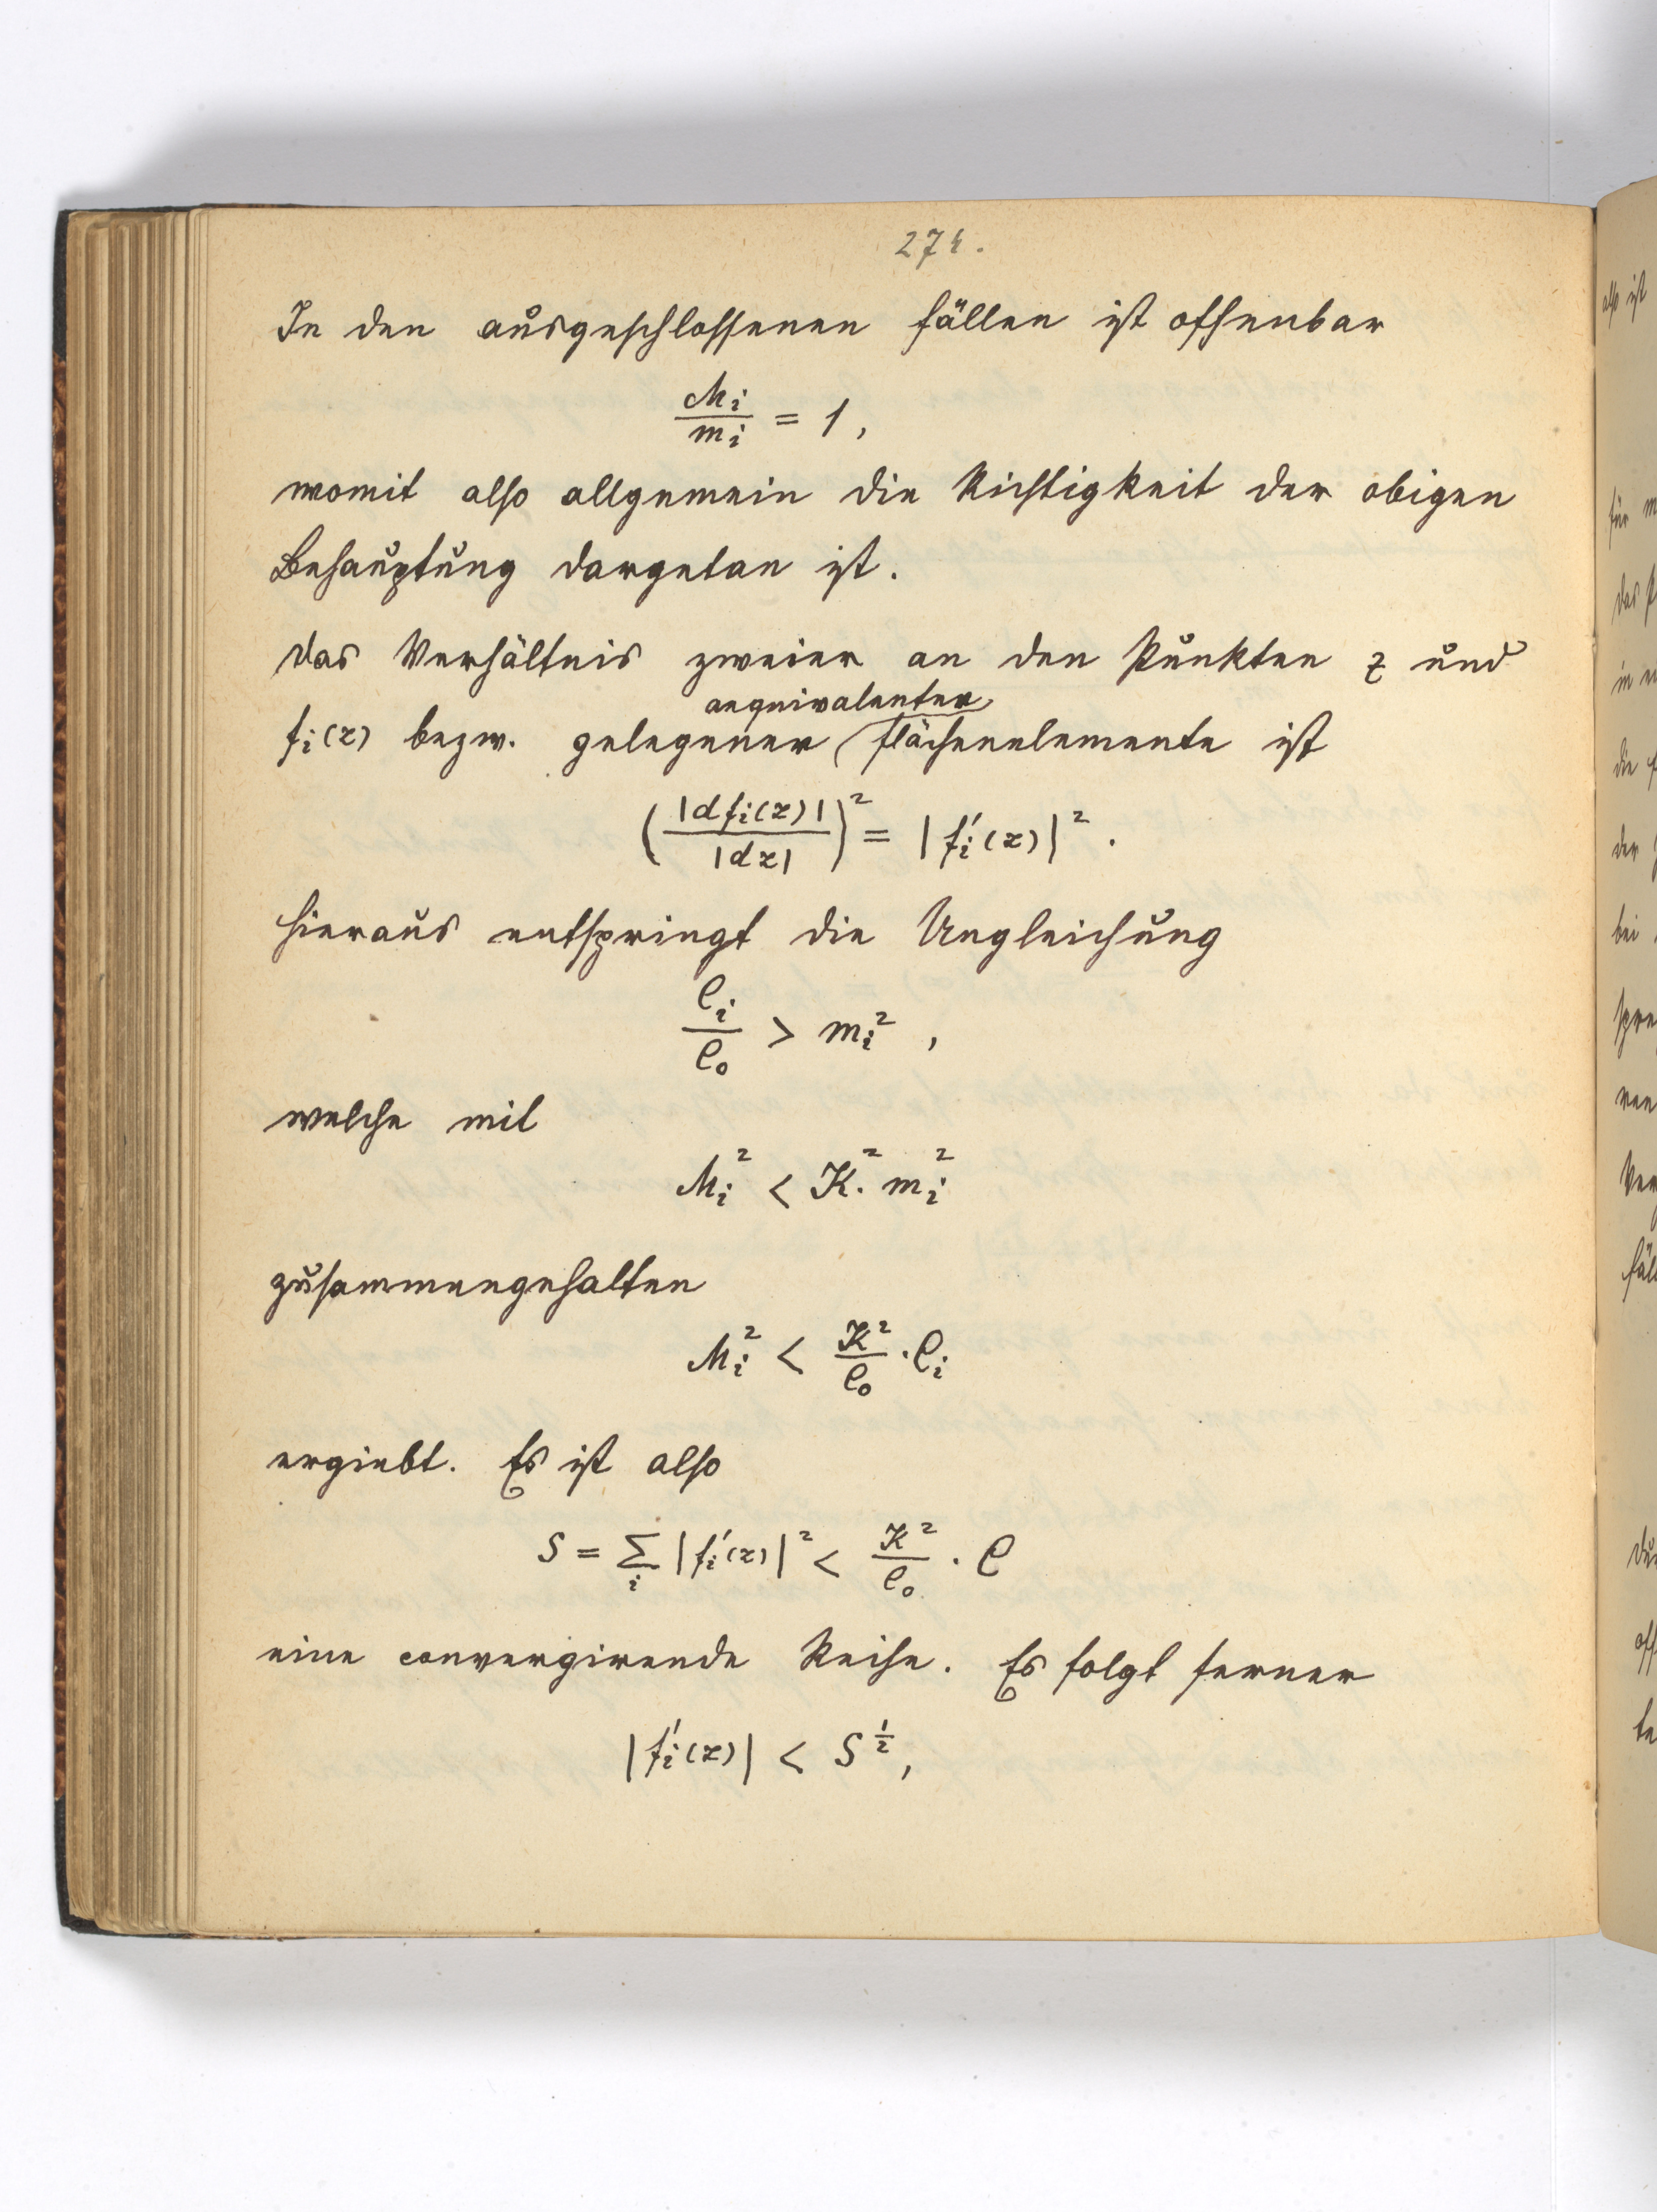 274.
In den ausgeschlossenen Fällen ist offenbar
M_i / m_i = 1,
womit also allgemein die Richtigkeit der obigen
Behauptung dargetan ist.
Das Verhältnis zweier an den Punkten z und
aequivalenter
f_i(z) bezw. gelegener Flächenelemente ist
(|df_i(z)| / |dz|)² = |f_i'(z)|².
Hieraus entspringt die Ungleichung
C_i / C_0 > m_i²,
welche mit
M_i² < K². m_i²
zusammengehalten
M_i² < K² / C_0 · C_i
ergiebt. Es ist also
S = Σ_i |f_i'(z)|² < K² / C_0 · C
eine convergirende Reihe. Es folgt ferner
|f_i'(z)| < S^½,